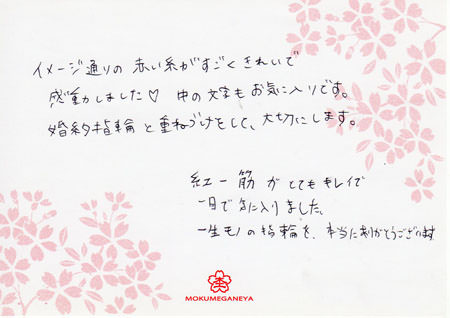 イメージ通りの赤い糸がすごくきれいで
感動しました♡ 中の文字もお気に入りです。
婚約指輪と重ねづけをして、大切にします。
紅一筋がとてもキレイで
一目で気に入りました。
一生モノの指輪を、本当にありがとうございます
MOKUMEGANEYA